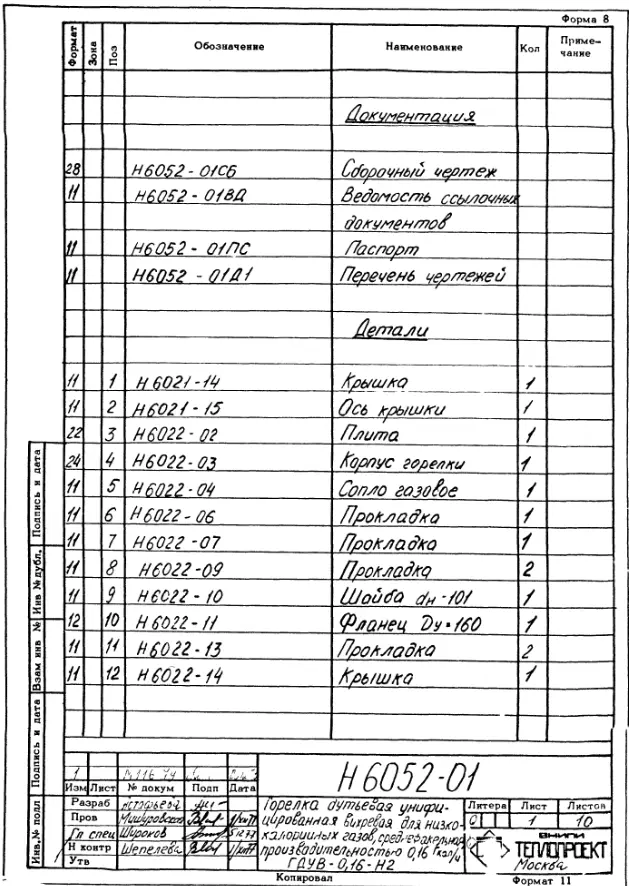 Форма 8
Формат Зона Поз Обозначение Наименование Кол Приме-
чание
Документация
28 Н6052-01СБ Сборочный чертеж
11 Н6052-01ВД Ведомость ссылочных
документов
11 Н6052-01ПС Паспорт
11 Н6052-01Д1 Перечень чертежей
Детали
11 1 Н6021-14 Крышка 1
11 2 Н6021-15 Ось крышки 1
22 3 Н6022-02 Плита 1
24 4 Н6022-03 Корпус горелки 1
11 5 Н6022-04 Сопло газовое 1
11 6 Н6022-06 Прокладка 1
11 7 Н6022-07 Прокладка 1
11 8 Н6022-09 Прокладка 2
11 9 Н6022-10 Шайба dн-101 1
12 10 Н6022-11 Фланец Dу=160 1
11 11 Н6022-13 Прокладка 2
11 12 Н6022-14 Крышка 1
Подпись и дата
Инв № дубл.
Взам инв №
Подпись и дата
Инв.№ подл
1
Изм Лист № докум Подп Дата
Н6052-01
Разраб
Пров Мишуровский
Гл спец Широков
Н контр Шепелева
Утв
Горелка дутьевая унифи-
цированная вихревая для низко-
калорийных газов, средне
производительностью 0,16 Гкал/ч
ГДУВ-0,16-Н2
Литера Лист Листов
1 10
ВНИПИ
ТЕПЛОПРОЕКТ
Москва
Копировал Формат 11